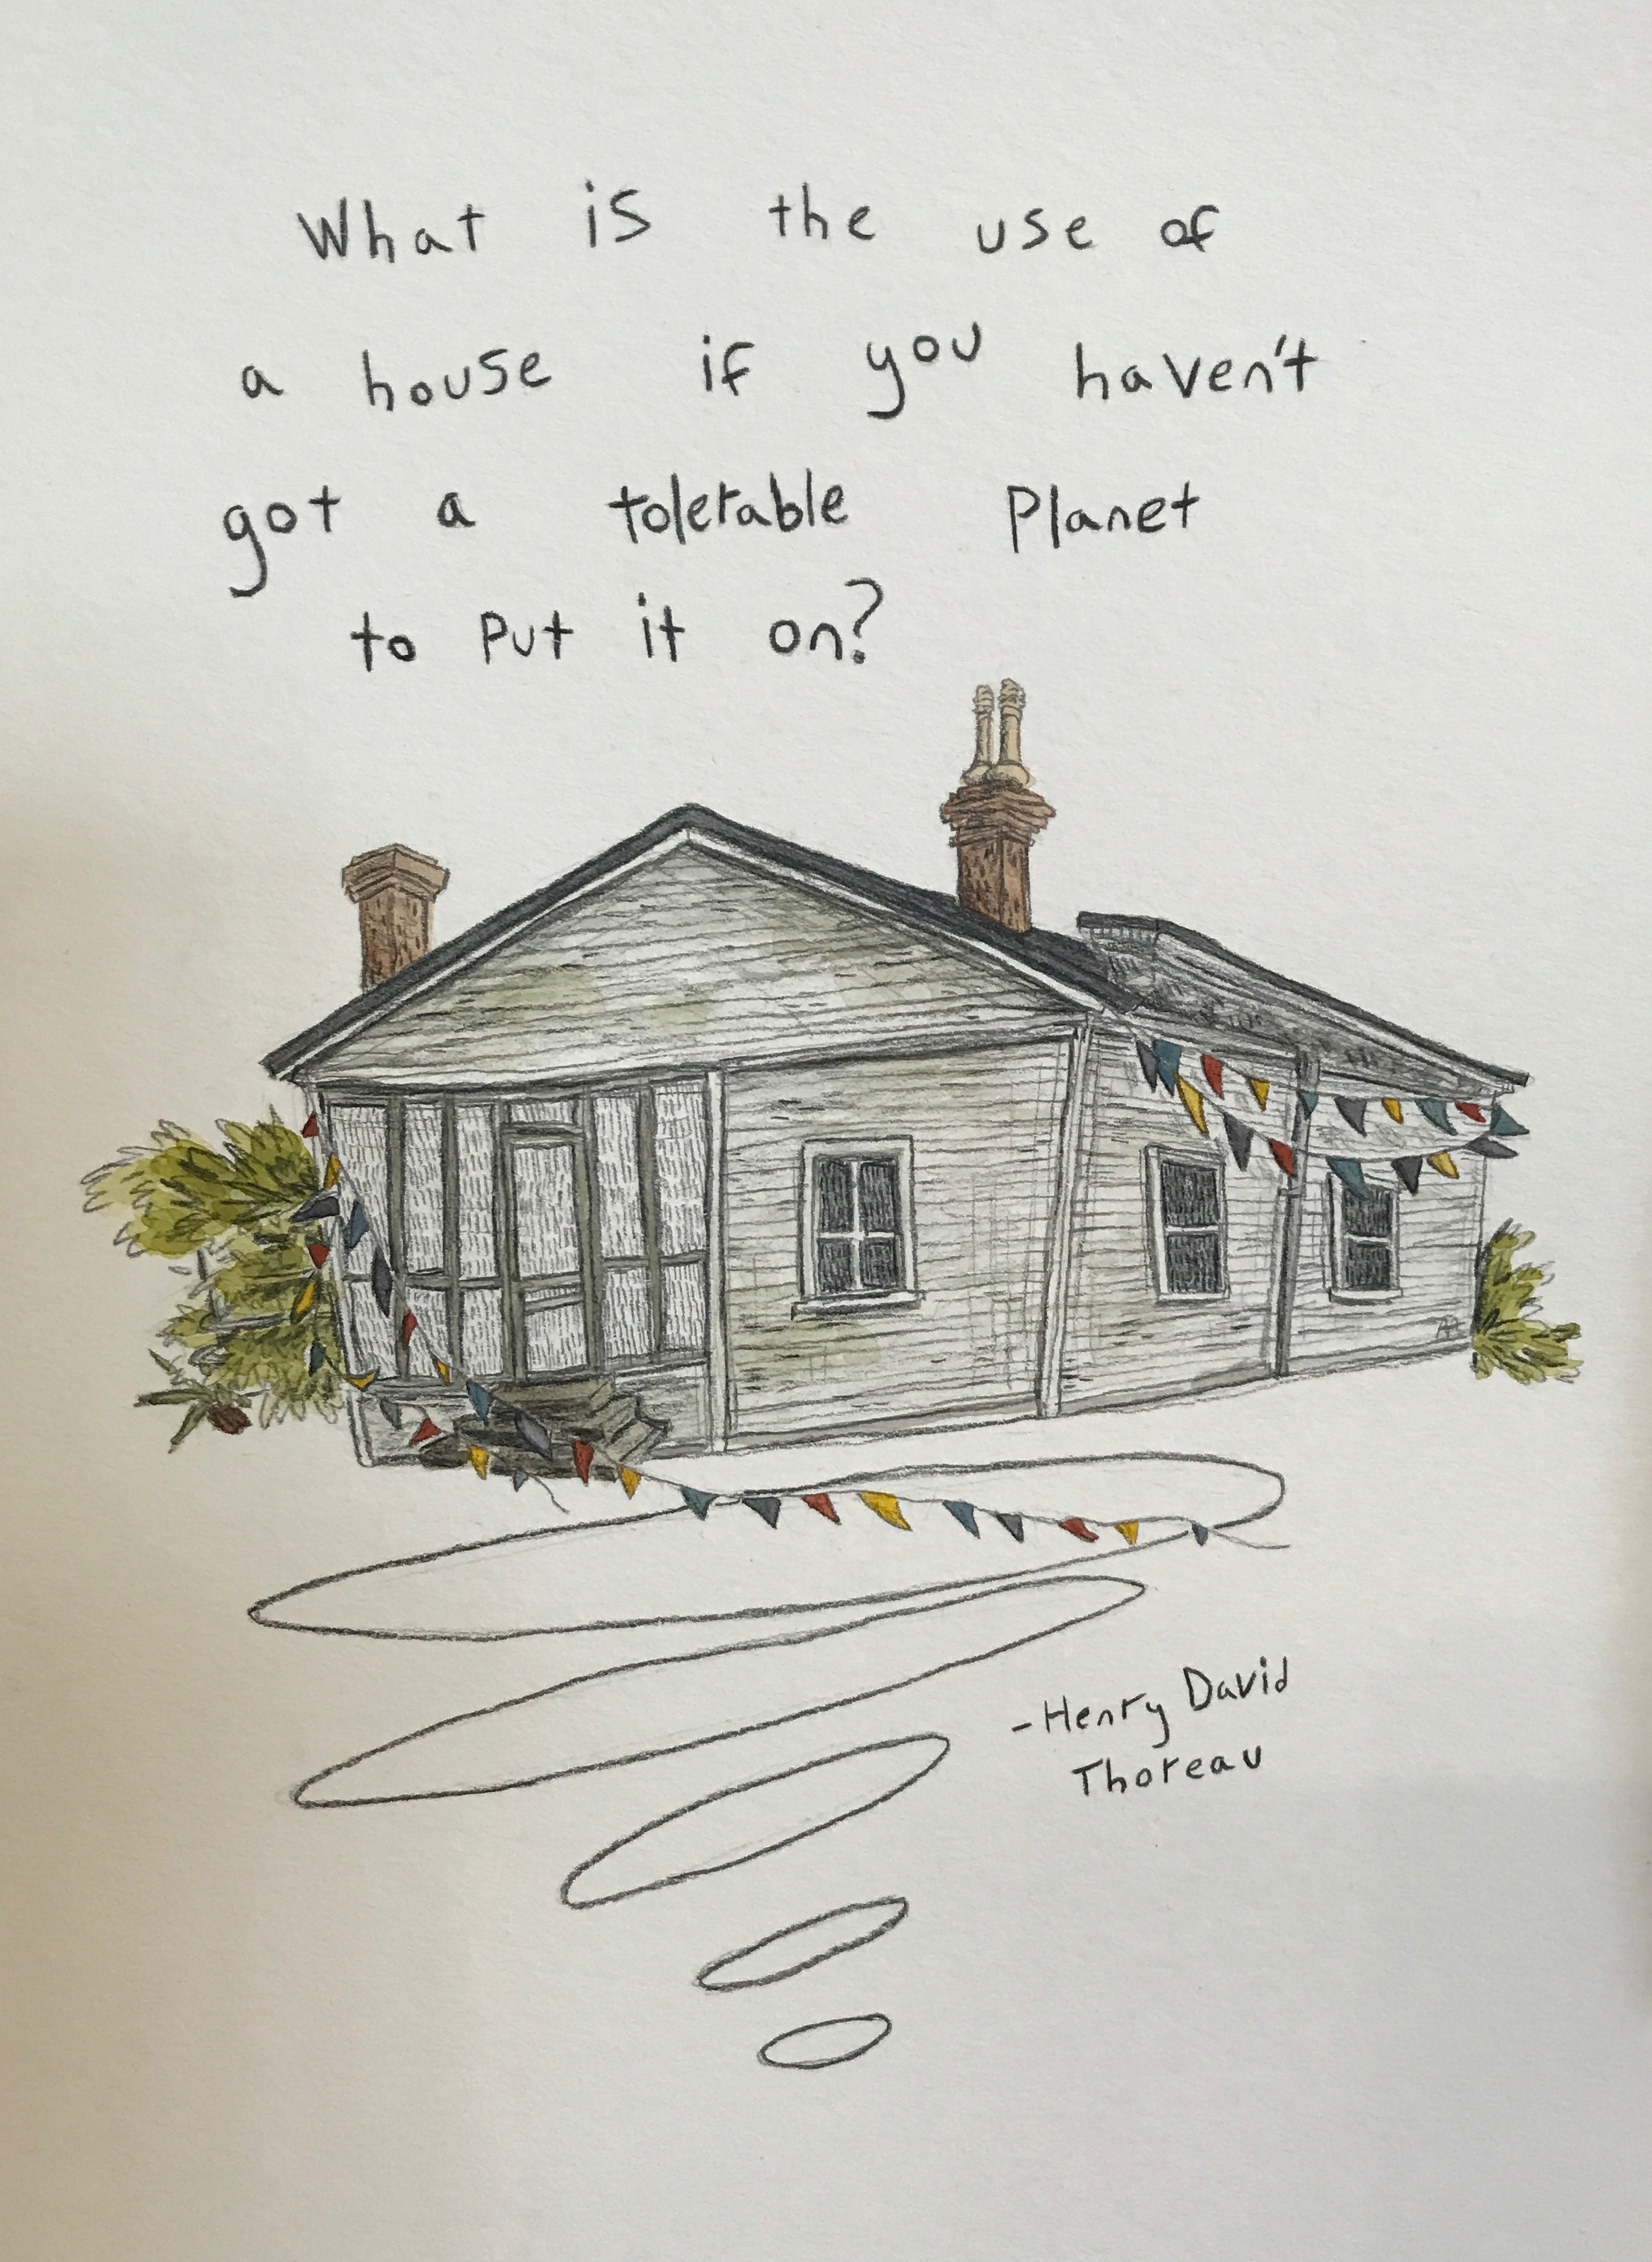 What is the use of
a house if you haven't
got a tolerable Planet
to put it on?
-Henry David
Thoreau